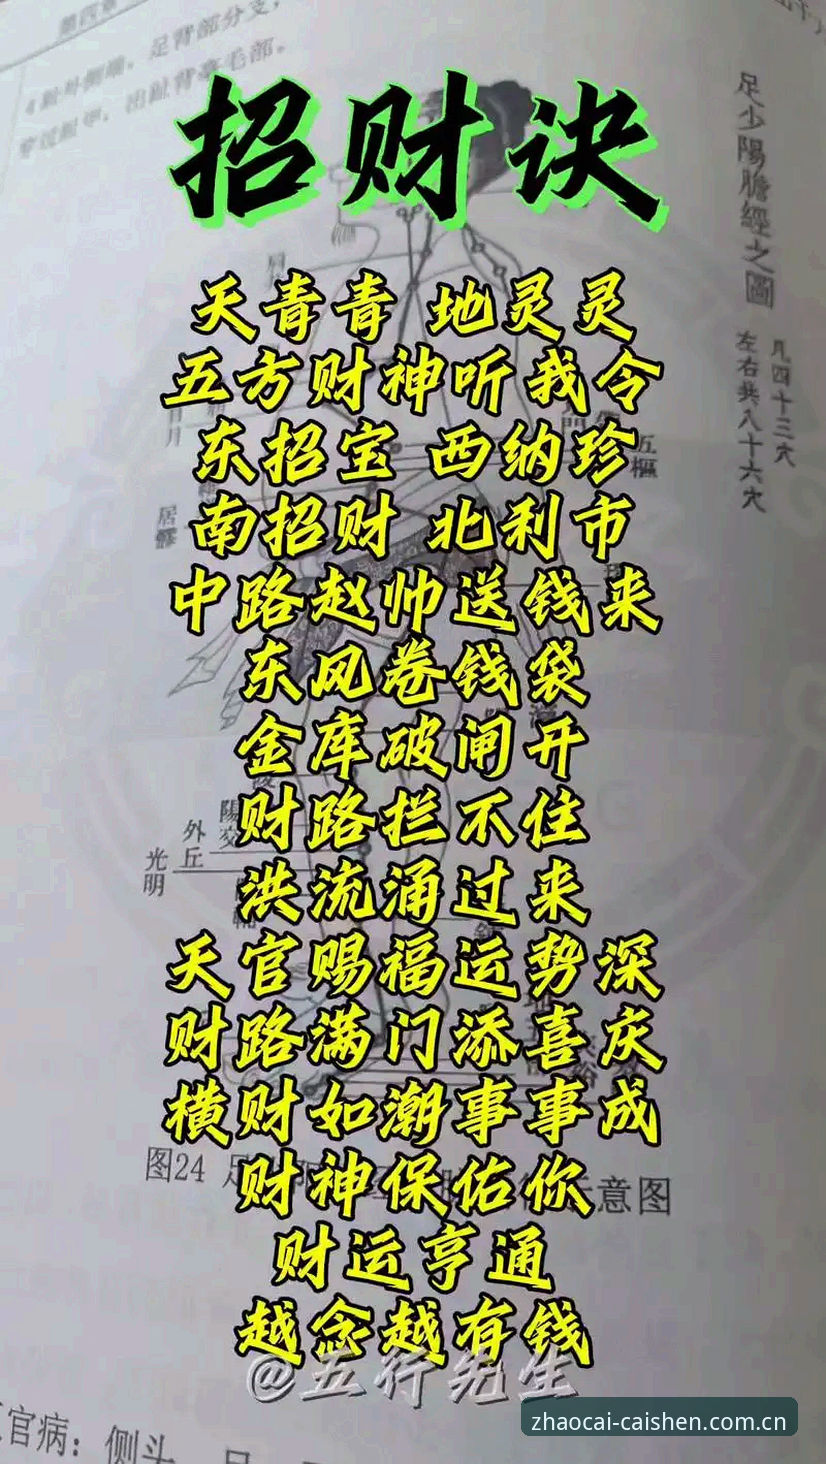 足背部分支，
招财诀
足少陽膽經之圖
凡四十三穴
左右共八十六穴
天青青 地灵灵
五方财神听我令
东招宝 西纳珍
南招财 北利市
中路赵帅送钱来
东风卷钱袋
金库破闸开
财路拦不住
洪流涌过来
天官赐福运势深
财路满门添喜庆
横财如潮事事成
财神保佑你
财运亨通
越念越有钱
五樞
居髎
陽交
外丘
光明
图24 足
意图
@五行先生
官病：侧头
zhaocai-caishen.com.cn